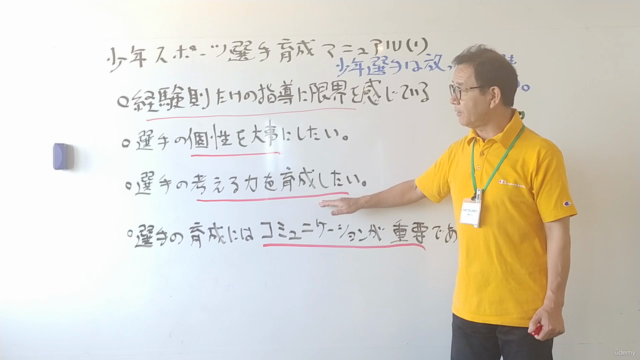 少年スポーツ選手育成マニュアル(1)
少年選手は放
○経験則だけの指導に限界を感じている
○選手の個性を大事にしたい。
○選手の考える力を育成したい。
○選手の育成にはコミュニケーションが重要であ
udemy